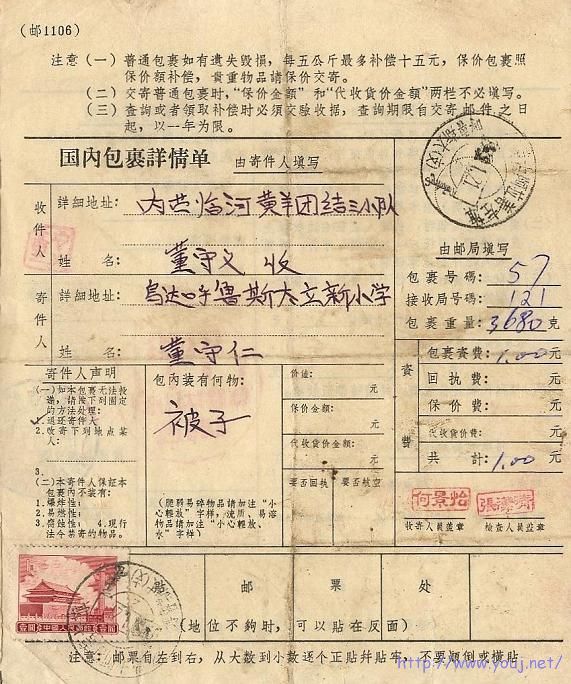 (邮1106)
注意(一)普通包裹如有遗失毁損，每五公斤最多补偿十五元，保价包裹照
保价額补偿，貴重物品請保价交寄。
(二)交寄普通包裹时，“保价金額”和“代收貨价金額”两栏不必填写。
(三)查詢或者領取补偿时必须交驗收据，查詢期限自交寄邮件之日
起，以一年为限。
国内包裹詳情单 由寄件人填写
收件人
詳細地址：内蒙临河黄羊团结三小队
姓名：董守义 收
寄件人
詳細地址：乌达呼鲁斯太立新小学
姓名：董守仁
由邮局填写
包裹号碼：57
接收局号碼：121
包裹重量：3680克
寄件人声明
(一)如本包裹无法投
递，請按下列圈定
的方法处理：
1.退还寄件人
2.改寄下列地点某
人：
3.
(二)本寄件人保证本
包裹内不装有：
1.爆炸性；
2.易燃性；
3.腐蝕性； 4.現行
法令禁寄的物品。
包内装有何物：
被子
(脆弱易碎物品請加注“小
心輕放”字样，流质、易溶
物品請加注“小心輕放、
水”字样)
价值： 元
保价金額： 元
代收貨价金額： 元
要否回执 要否航空
資費
包裹資費：1.00元
回执費： 元
保价費： 元
代收貨价費： 元
共計：1.00元
何景怡
收寄人員盖章 檢查人員盖章
貼邮票处
(地位不夠时，可以貼在反面)
注意：邮票自左到右，从大数到小数逐个正貼并貼牢，不要顛倒或橫貼
http://www.youj.net/